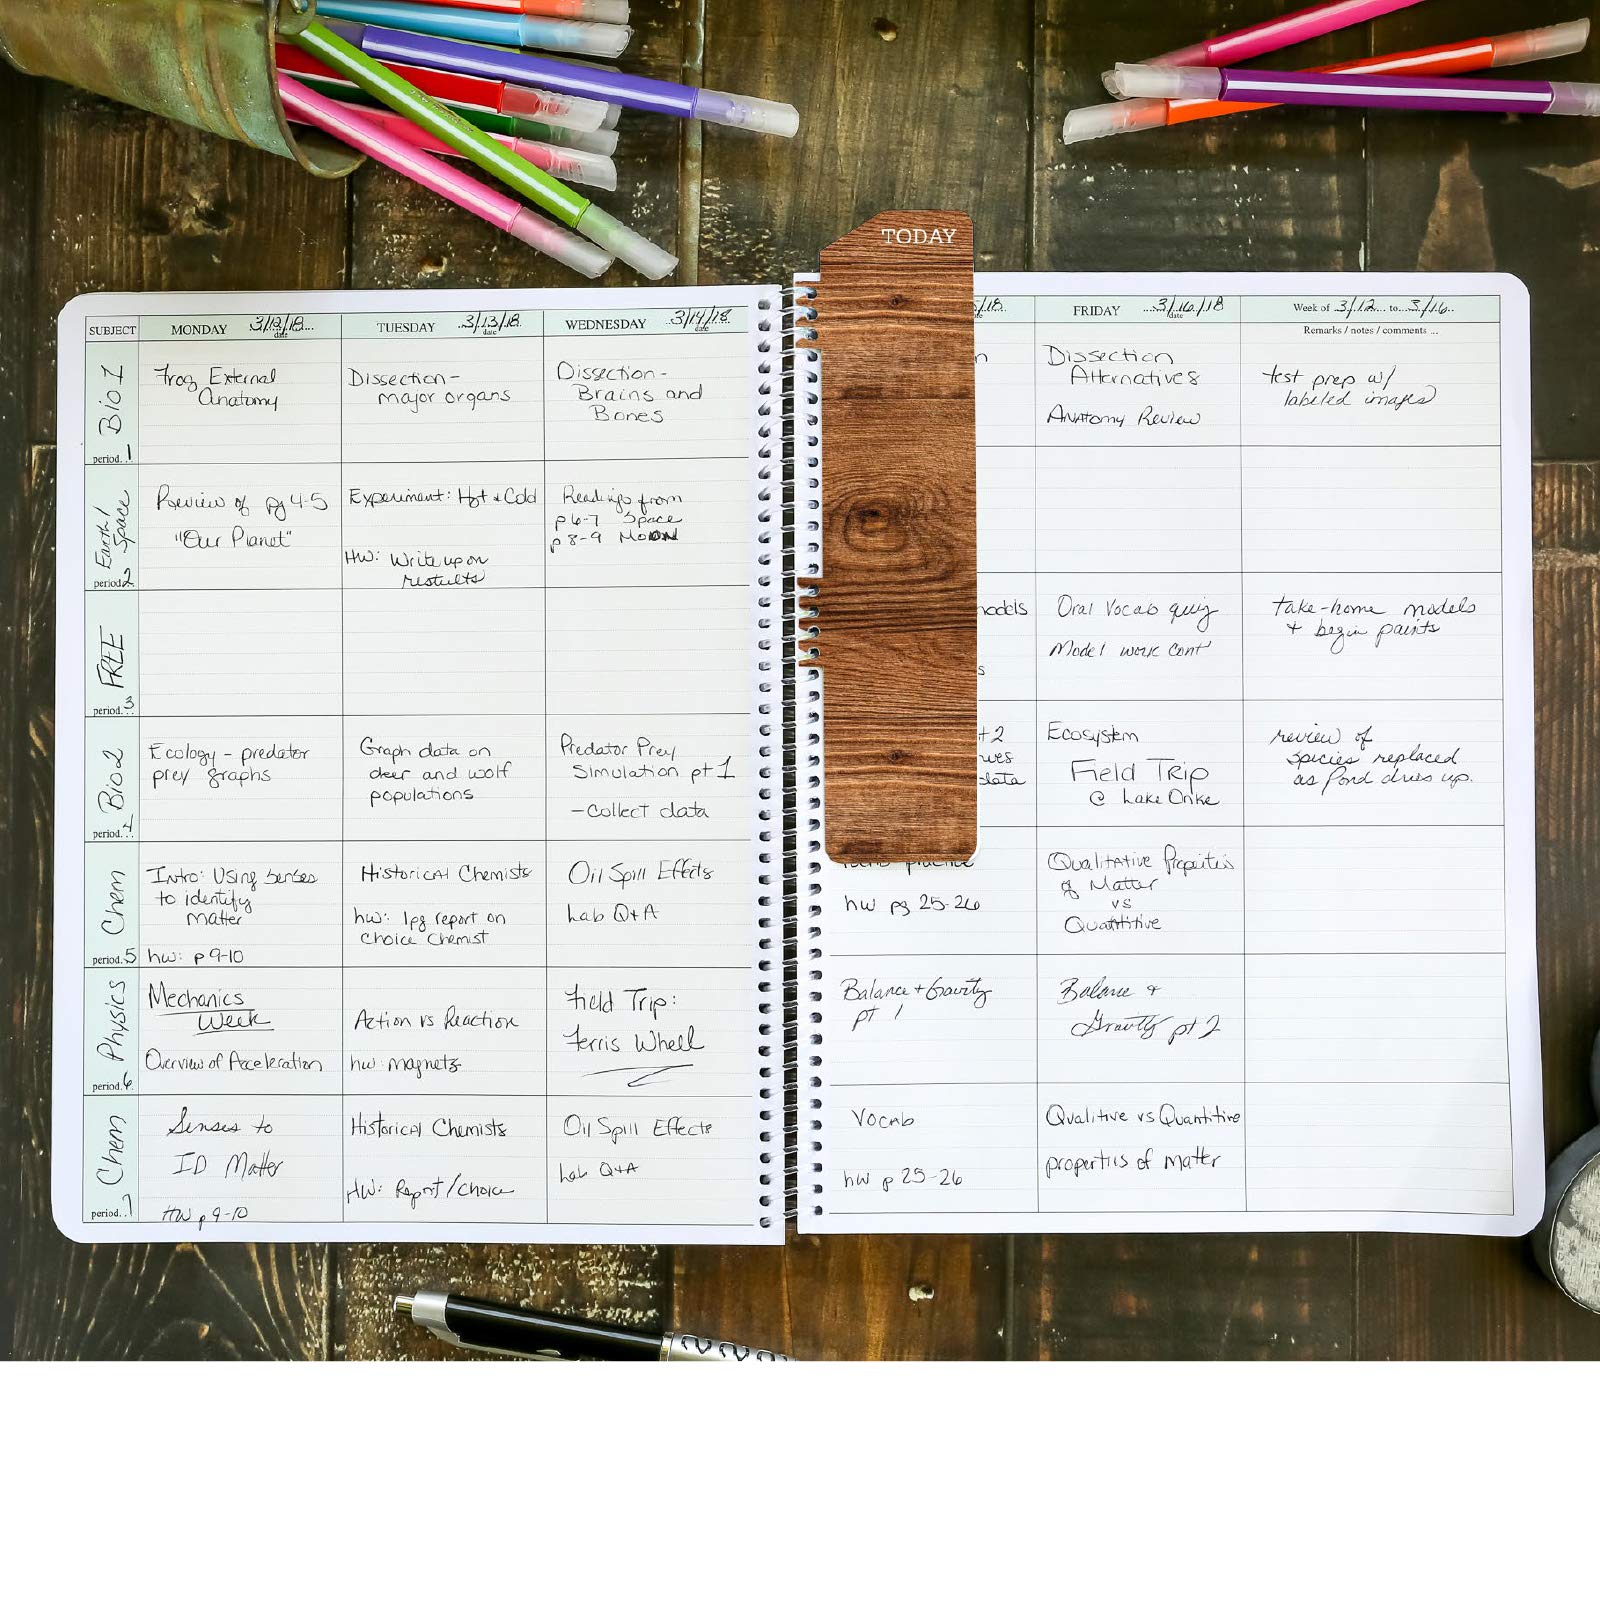 TODAY
SUBJECT
MONDAY 3/12/18
date
TUESDAY 3/13/18
date
WEDNESDAY 3/14/18
date
Bio 1
period 1
Frog External
Anatomy
Dissection-
major organs
Dissection-
Brains and
Bones
Earth/
Space
period 2
Preview of pg 4-5
"Our Planet"
Experiment: Hot & Cold
HW: Write up on
results
Readings from
p 6-7 Space
p 8-9 Moon
FREE
period 3
Bio 2
period 4
Ecology - predator
prey graphs
Graph data on
deer and wolf
populations
Predator Prey
Simulation pt 1
- Collect data
Chem
period 5
Intro: Using senses
to identify
matter
hw: p 9-10
Historical Chemists
hw: 1pg report on
choice Chemist
Oil Spill Effects
Lab Q+A
Physics
period 6
Mechanics
Week
Overview of Acceleration
Action vs Reaction
hw: magnets
Field Trip:
Ferris Wheel
Chem
period 7
Senses to
ID Matter
HW p 9-10
Historical Chemists
HW: Report/Choice
Oil Spill Effects
Lab Q+A
/18
FRIDAY 3/16/18
date
Week of 3/12 to 3/16
Remarks / notes / comments ...
Dissection
Alternatives
Anatomy Review
test prep w/
labeled images
models
Oral Vocab quiz
Model work cont'
take-home models
+ begin paints
Ecosystem
Field Trip
@ Lake Onke
data
review of
species replaced
as Pond dries up.
practice
hw pg 25-26
Qualitative Properties
of Matter
vs
Quantitive
Balance + Gravity
pt 1
Balance +
Gravity pt 2
Vocab
hw p 25-26
Qualitive vs Quantitive
properties of matter